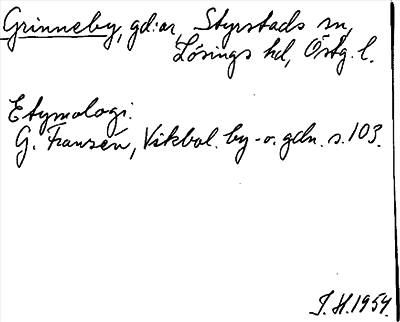 Grinneby, gd:ar, Styrstads sn,
Lösings hd, Östg. l.
Etymologi.
G. Franzén, Vikbol. by-o. gdn. s. 103.
I. H. 1954.